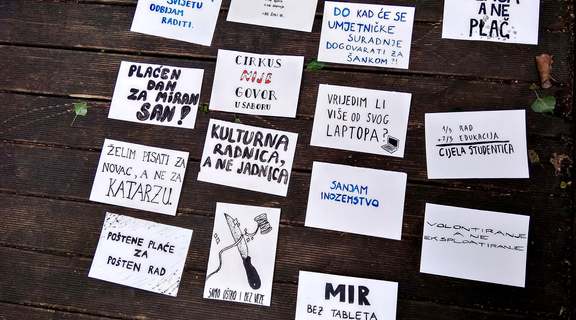 SVIJETU
ODBIJAM
RADITI.
DO KAD ĆE SE
UMJETNIČKE
SURADNJE
DOGOVARATI ZA
ŠANKOM?!
A NE
PLAČ
PLAĆEN
DAN
ZA MIRAN
SAN!
CIRKUS
NIJE
GOVOR
U SABORU
VRIJEDIM LI
VIŠE OD SVOG
LAPTOPA?
1/3 RAD
+2/3 EDUKACIJA
CIJELA STUDENTICA
ŽELIM PISATI ZA
NOVAC, A NE ZA
KATARZU.
KULTURNA
RADNICA,
A NE JADNICA
SANJAM
INOZEMSTVO
VOLONTIRANJE
A NE
EKSPLOATIRANJE
POŠTENE PLAĆE
ZA
POŠTEN RAD
SAMO OŠTRO I BEZ VEZE
MIR
BEZ TABLETA